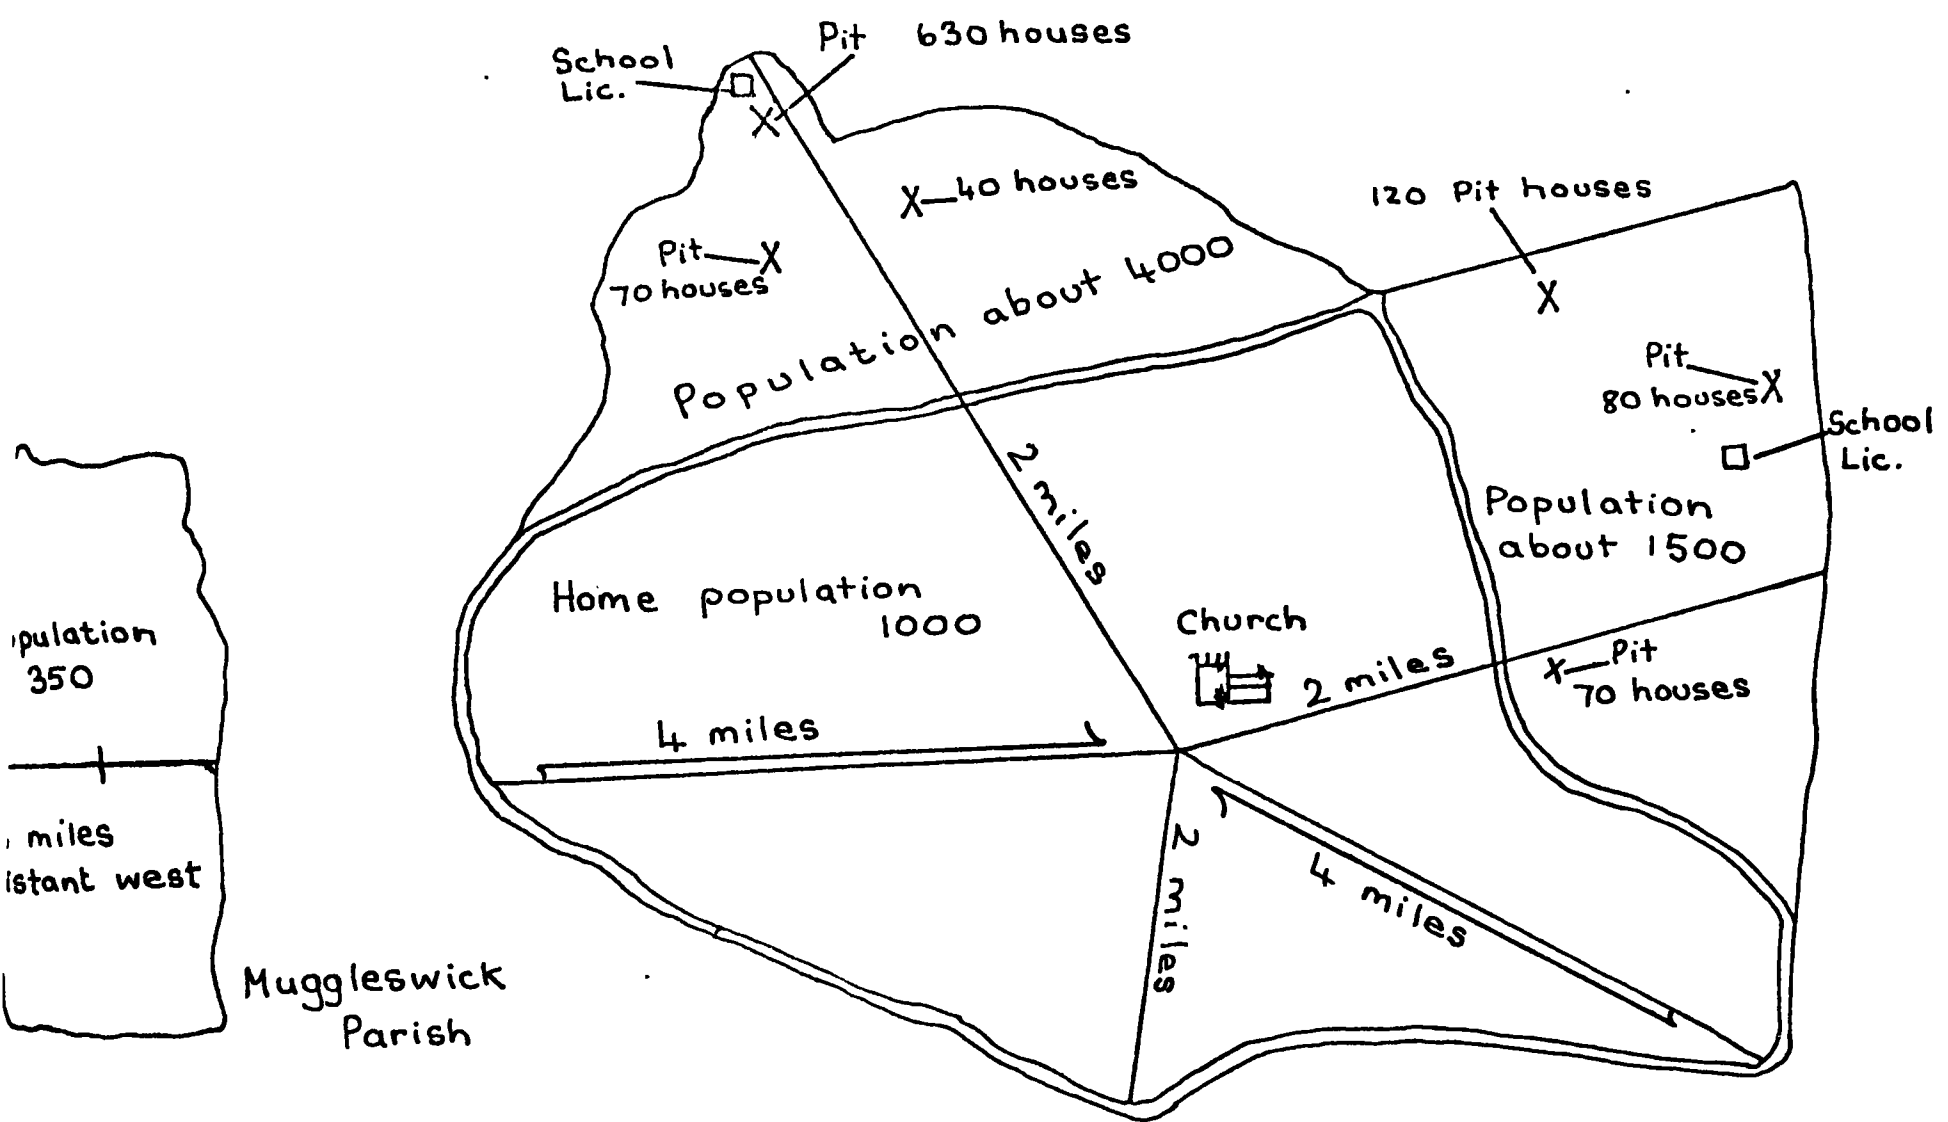 Pit 630 houses
School
Lic.
X—40 houses
120 Pit houses
X
Pit—X
70 houses
Population about 4000
X
Pit
80 houses X
School
Lic.
Population
about 1500
2 miles
Home population
1000
Church
2 miles
X—Pit
70 houses
4 miles
2 miles
4 miles
pulation
350
miles
istant west
Muggleswick
Parish